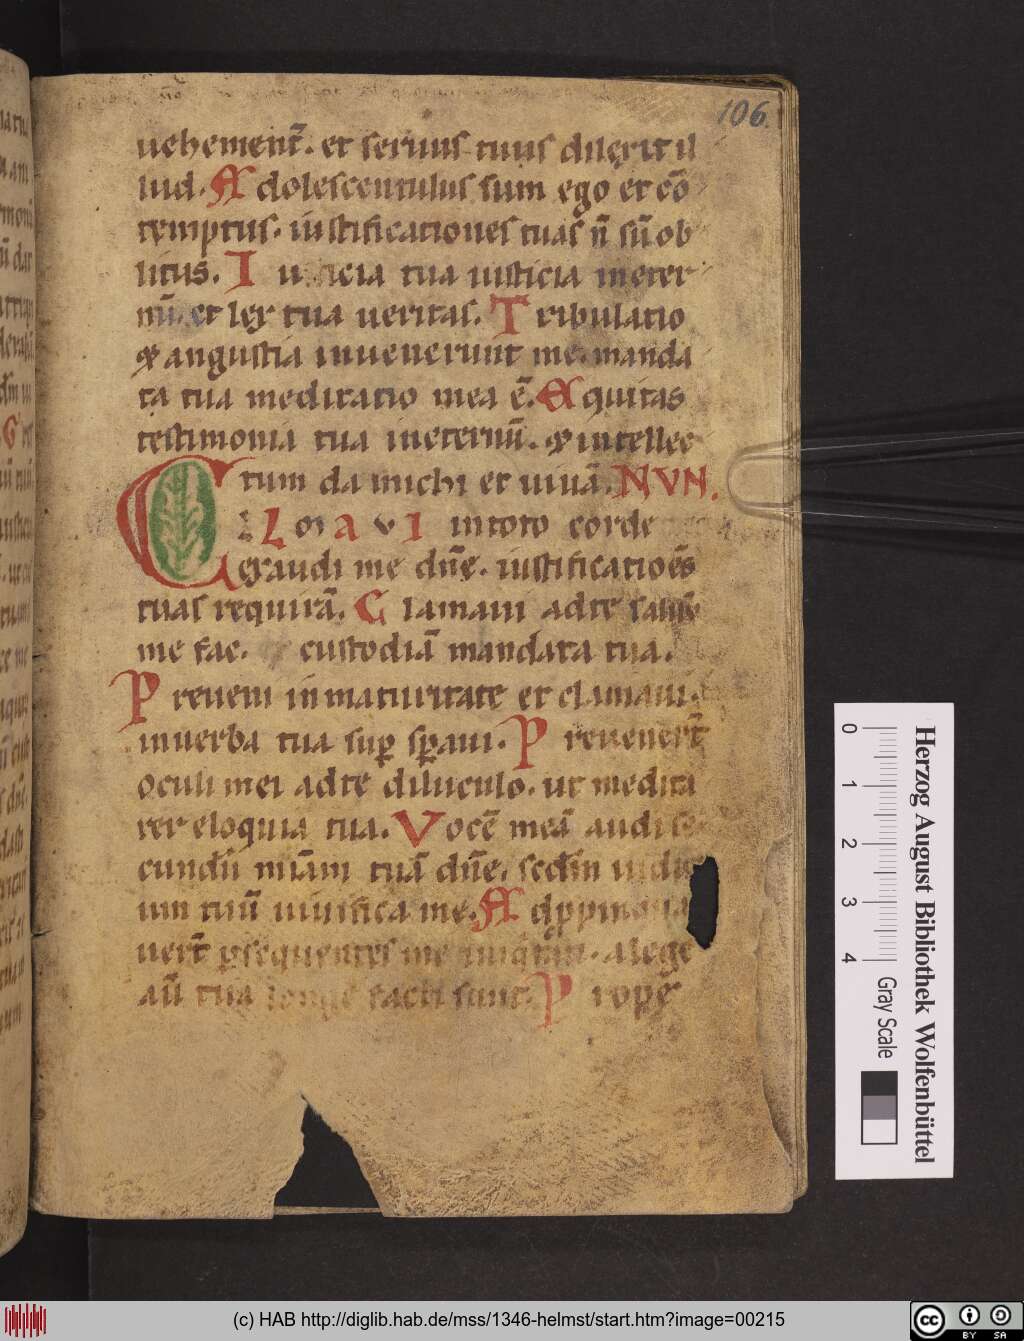 106.
uehement̄. et seruus tuus dilexit il
lud. Adolescentulus sum ego et cō
temptus. iustificationes tuas n̄ sū ob
litus. Iusticia tua iusticia ineter
nū. et lex tua ueritas. Tribulatio
& angustia inuenerunt me. manda
ta tua meditatio mea ē. Aequitas
testimonia tua ineternū. & intellec
tum da michi et uiuā. NVN.
CLamaVI intoto corde
exaudi me dn̄e. iustificatioēs
tuas requirā. Clamaui adte saluū
me fac. custodiā mandata tua.
Preueni inmaturitate et clamaui.
inuerba tua sup̄ sp̄aui. Preuenert̄
oculi mei adte diluculo. ut medita
rer eloquia tua. Vocē meā audi se
cundū miām tuā dn̄e. scdm̄ iudic
ium tuū uiuifica me. Adppinqua
uert̄ psequentes me iniqtati. alege
aū tua longe facti sunt. Prope
Herzog August Bibliothek Wolfenbüttel
0 1 2 3 4
Gray Scale
(c) HAB http://diglib.hab.de/mss/1346-helmst/start.htm?image=00215
cc BY SA